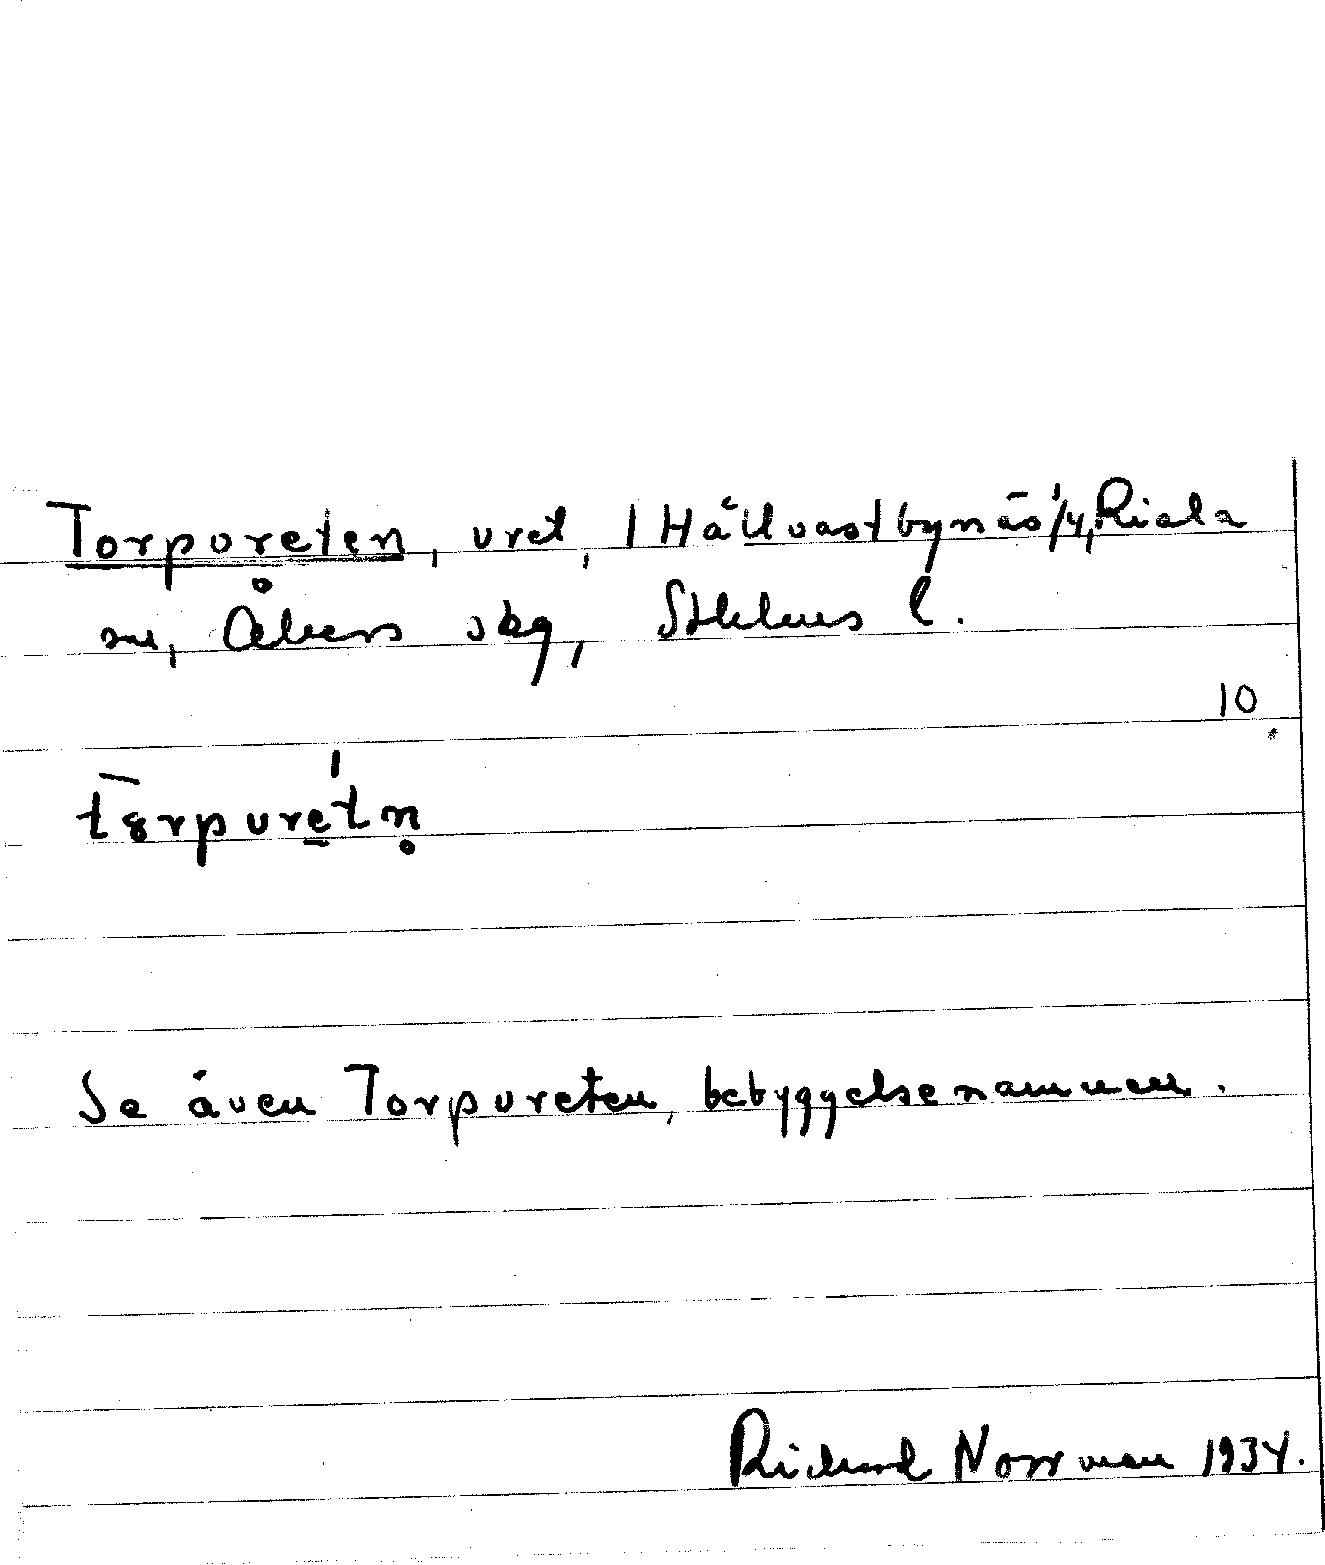 Torpvreten, vret, / Hällvastbynäs 1/4, Riala
sn, Åkers skg, Sthlms l.
10
Se även Torpvreten, bebyggelsenamnen.
Richard Norrman 1934.